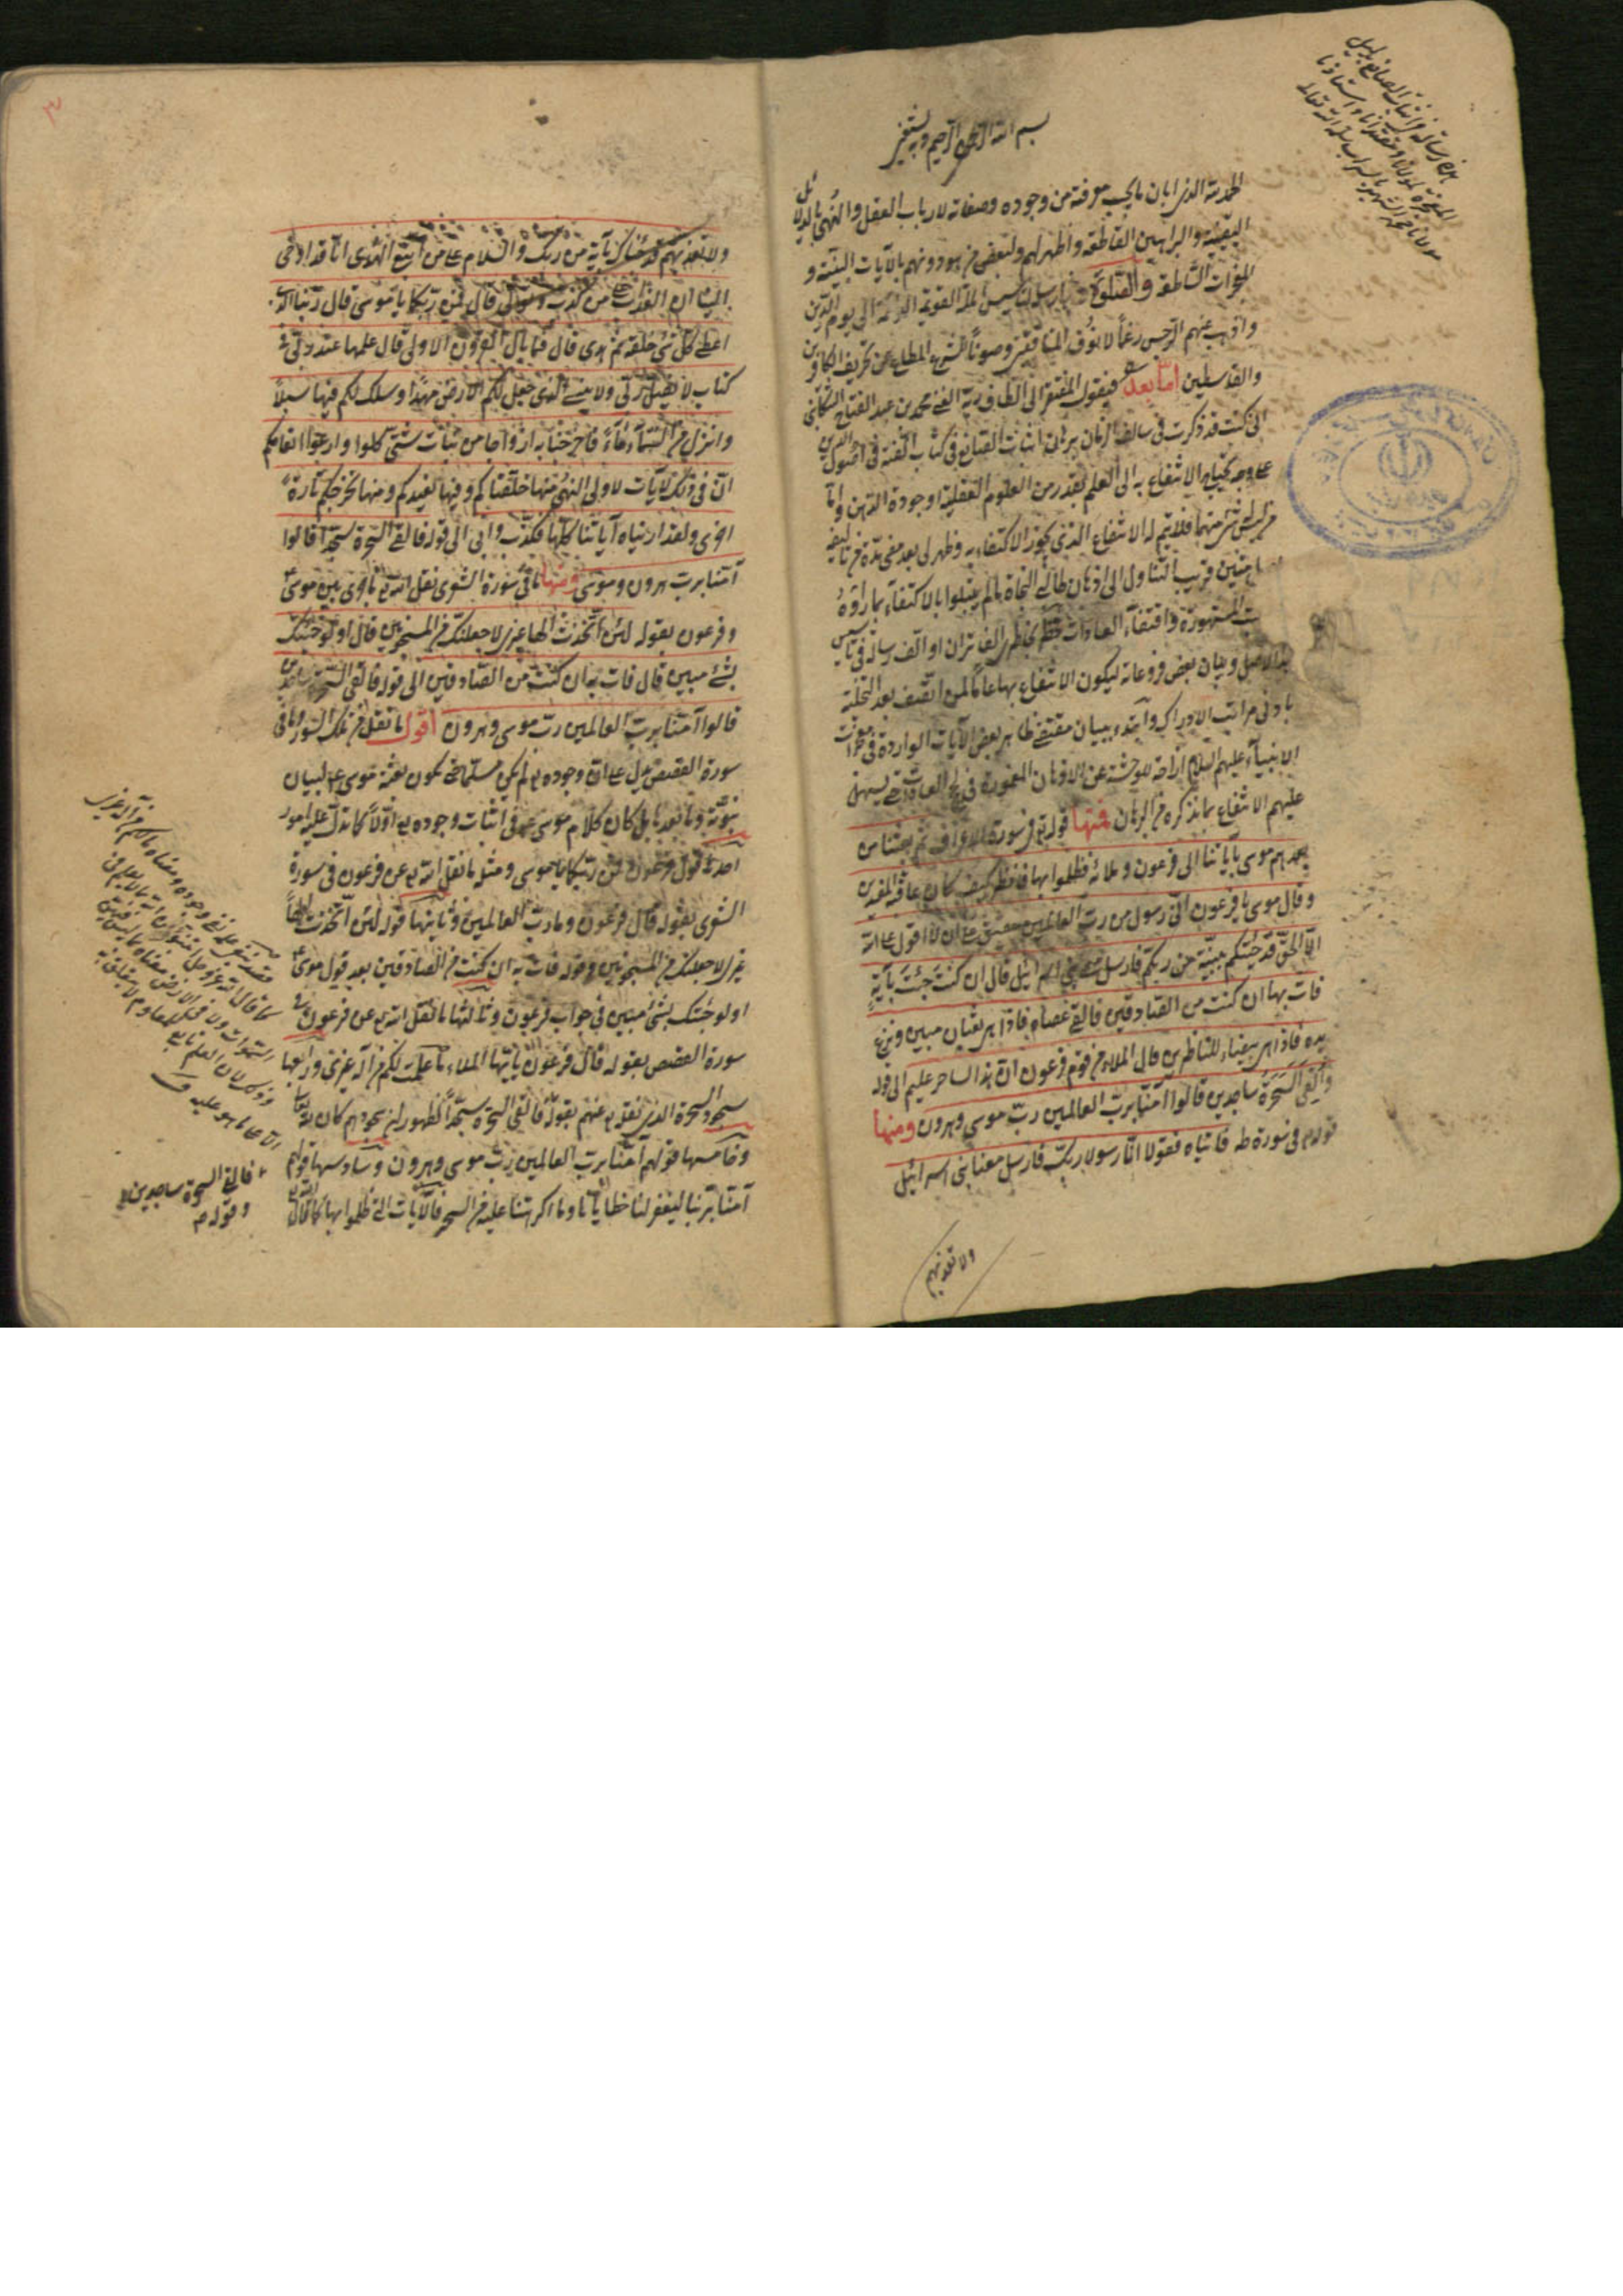 بسم الله الرحمن الرحيم وبه نستعين
الحمد لله الذى ابان ما يجب معرفته من وجوده وصفاته لارباب العقل والنهى بالدلائل
اليقينية والبراهين القاطعة واظهر لهم ولبعض من هو دونهم بالآيات البينة و
المعجزات الساطعة والصلوة
واذهب عنهم الرجس رغماً لانوف المنافقين وصوناً للشرع المطاع عن تحريف الكافرين
والقاسطين اما بعد فيقول المفتقر الى الطاف ربه الغنى محمد بن عبد الفتاح التنكابنى
انى كنت قد ذكرت فى سالف الزمان برهان اثبات الصانع فى كتاب الفته فى اصول الدين
على وجه يحتاج الانتفاع به الى العلم بقدر من العلوم العقلية او جودة الذهن واما
من ليس له شئ منهما فلا يتم له الانتفاع الذى يجوز الاكتفاء به وظهر لى بعد مضى مدة من تاليفه
قريب التناول الى اذهان طالبى النجاة ما لم يبتلوا بالاكتفاء بما راوه
المشهورة واقتفاء العادات فخطر بخاطرى الفاتر ان اؤلف رسالة فى تاسيس
هذا الاصل وبيان بعض فروعاته ليكون الانتفاع بها عاماً لمن اتصف بعد التخلية
بادنى مراتب الادراك وابتدء ببيان مقتضى ظاهر بعض الآيات الواردة فى
الانبياء عليهم السلام ازاحة للوحشة عن الاذهان المغمورة فى العادات حتى يسهل
عليهم الانتفاع بما نذكره من البرهان فمنها قوله تع فى سورة الاعراف ثم بعثنا من
بعدهم موسى بآياتنا الى فرعون وملائه فظلموا بها فانظر كيف كان عاقبة المفسدين
وقال موسى يا فرعون انى رسول من رب العالمين حقيق على ان لا اقول على الله
الا الحق قد جئتكم ببينة من ربكم فارسل معى بنى اسرائيل قال ان كنت جئت بآية
فات بها ان كنت من الصادقين فالقى عصاه فاذا هى ثعبان مبين ونزع
يده فاذا هى بيضاء للناظرين قال الملاء من قوم فرعون ان هذا لساحر عليم الى قوله
والقى السحرة ساجدين قالوا آمنا برب العالمين رب موسى وهرون ومنها
قوله تع فى سورة طه فاتياه فقولا انا رسولا ربك فارسل معنا بنى اسرائيل
ولا تعذبهم
٣
ولا تعذبهم قد جئناك بآية من ربك والسلام على من اتبع الهدى انا قد اوحى
الينا ان العذاب على من كذب وتولى قال فمن ربكما يا موسى قال ربنا الذى
اعطى كل شئ خلقه ثم هدى قال فما بال القرون الاولى قال علمها عند ربى فى
كتاب لا يضل ربى ولا ينسى الذى جعل لكم الارض مهدا وسلك لكم فيها سبلاً
وانزل من السماء ماءً فاخرجنا به ازواجا من نبات شتى كلوا وارعوا انعامكم
ان فى ذلك لآيات لاولى النهى منها خلقناكم وفيها نعيدكم ومنها نخرجكم تارة
اخرى ولقد اريناه آياتنا كلها فكذب وابى الى قوله فالقى السحرة سجدا قالوا
آمنا برب هرون وموسى ومنها ما فى سورة الشعرى نقل الله تع ما جرى بين موسى
وفرعون بقوله لئن اتخذت الها غيرى لاجعلنك من المسجونين قال اولو جئتك
بشئ مبين قال فات به ان كنت من الصادقين الى قوله فالقى السحرة ساجدين
قالوا آمنا برب العالمين رب موسى وهرون اقول ما نقل من تلك السور وما فى
سورة القصص يدل على ان وجوده تع لم يكن مسلما حتى تكون بعثة موسى ع لبيان
نبوته وما بعدها بل كان كلام موسى ع فى اثبات وجوده تع اولاً كما تدل عليه امور
احدها قول فرعون فمن ربكما يا موسى ومثله ما نقل الله تع عن فرعون فى سورة
الشعرى بقوله قال فرعون وما رب العالمين وثانيها قوله لئن اتخذت الهاً
غيرى لاجعلنك من المسجونين وقوله فات به ان كنت من الصادقين بعد قول موسى ع
اولو جئتك بشئ مبين فى جواب فرعون وثالثها ما نقل الله تع عن فرعون فى
سورة القصص بقوله قال فرعون يا ايها الملاء ما علمت لكم من اله غيرى ورابعها
سجود السحرة الذى نقله تع عنهم بقوله فالقى السحرة سجداً لظهور ان سجودهم كان لله تعالى
وخامسها قولهم آمنا برب العالمين رب موسى وهرون وسادسها قولهم
آمنا بربنا ليغفر لنا خطايانا وما اكرهتنا عليه من السحر فالآيات التى ظلموا بها كما قال الله تع
فالقى السحرة ساجدين
وقوله تع